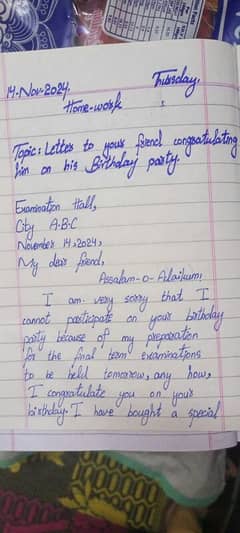 14-Nov-2024. Thursday,
Home-work :
Topic: Letter to your friend congratulating
him on his Birthday party.
Examination Hall,
City A·B·C
November 14, 2024,
My dear friend,
Assalam-o-Alaikum,
I am very sorry that I
cannot participate on your birthday
party because of my preparation
for the final term examinations
to be held tomorrow, any how,
I congratulate you on your
birthday. I have bought a special